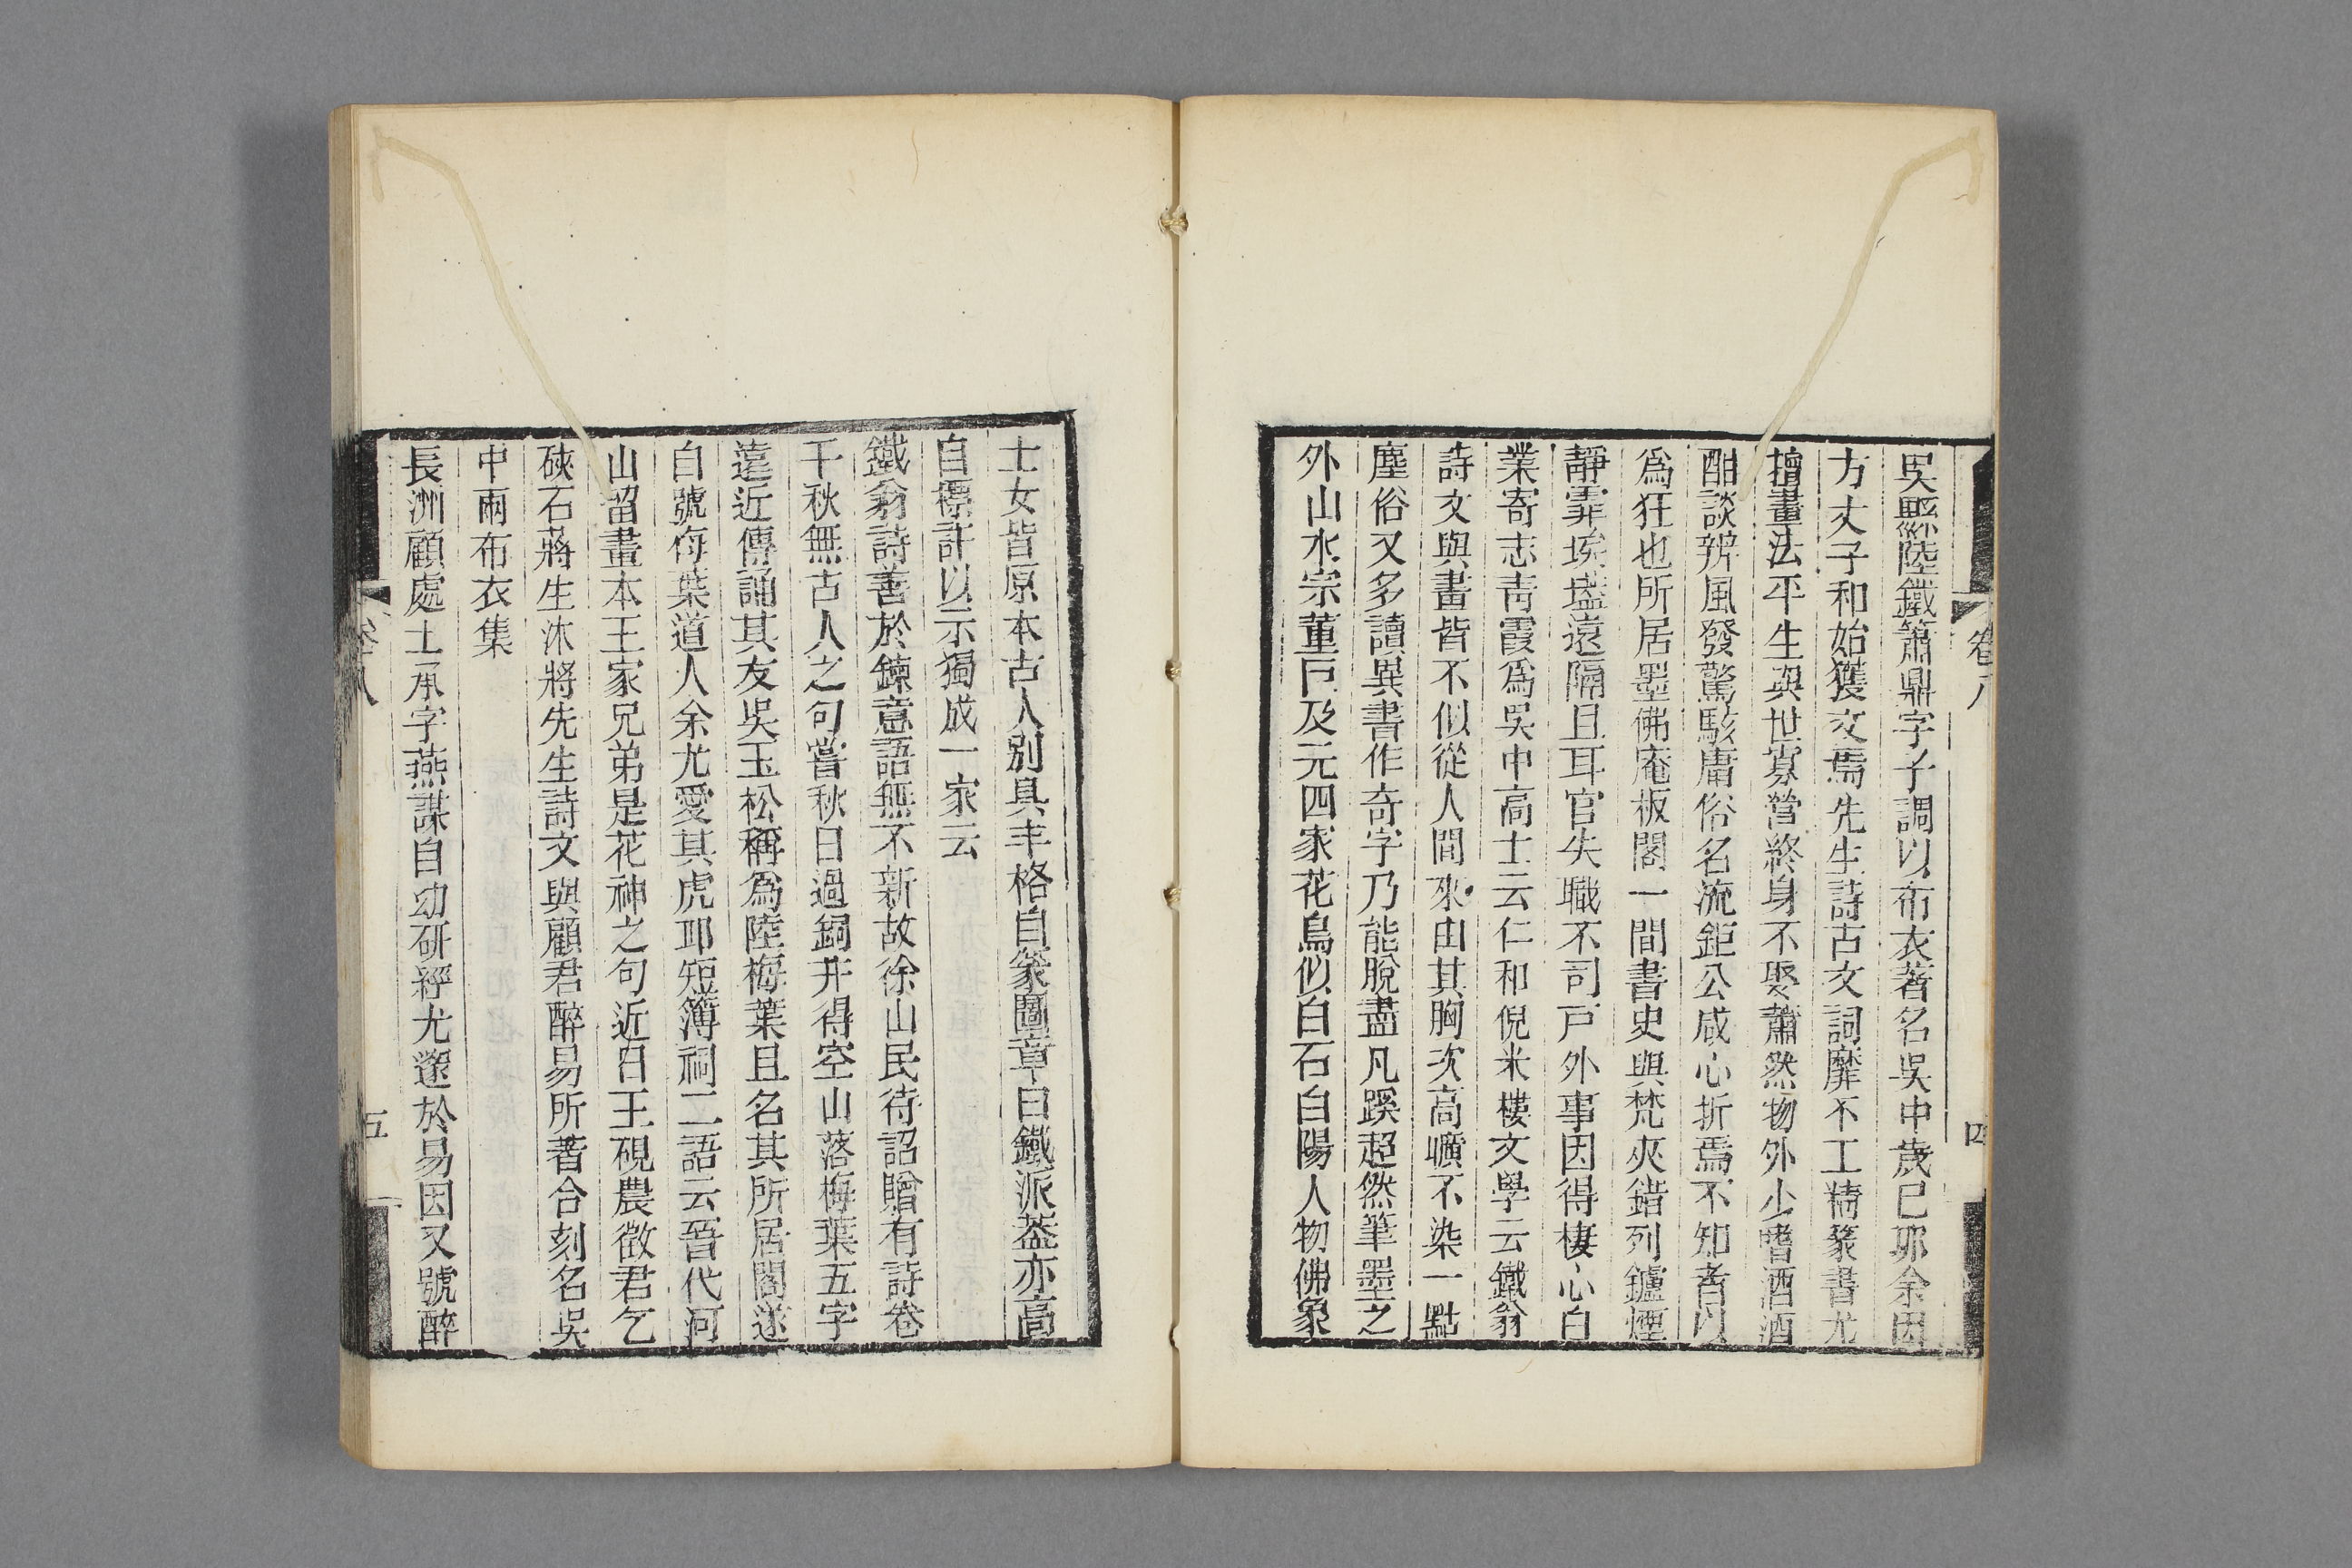 卷八
四
吳縣陸鐵簫鼎字子調以布衣著名吳中歲已邜余因
方丈子和始獲交焉先生詩古文詞靡不工精篆書尤
擅畫法平生與世寡營終身不娶蕭然物外少嗜酒酒
酣談辨風發驚駭庸俗名流鉅公咸心折焉不知者以
爲狂也所居墨佛庵板閣一間書史與梵夾錯列鑪煙
靜霏埃壒遠隔且耳官失職不司戸外事因得棲心白
業寄志靑霞爲吳中高士云仁和倪米樓文學云鐵翁
詩文與畫皆不似從人間來由其胸次高曠不染一點
塵俗又多讀異書作奇字乃能脫盡凡蹊超然筆墨之
外山水宗董巨及元四家花鳥似白石白陽人物佛象
士女皆原本古人別具丰格自篆圖章曰鐵派葢亦高
自標許以示獨成一家云
鐵翁詩善於鍊意語無不新故徐山民待詔贈有詩卷
千秋無古人之句嘗秋日過銅井得空山落梅葉五字
遠近傳誦其友吳玉松稱爲陸梅葉且名其所居閣遂
自號梅葉道人余尤愛其虎邱短簿祠二語云晉代河
山留畫本王家兄弟是花神之句近日王硯農徵君乞
硤石蔣生沐將先生詩文與顧君醉易所著合刻名吳
中兩布衣集
長洲顧處士承字燕謀自幼研經尤邃於易因又號醉
卷八
五